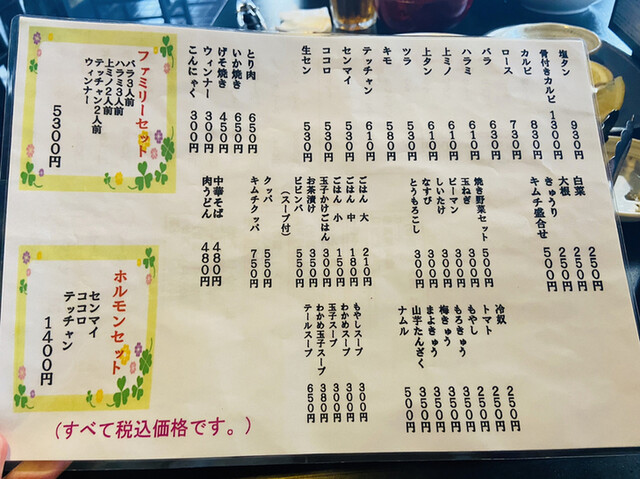 塩タン 930円
骨付きカルビ 1300円
カルビ 830円
ロース 730円
バラ 630円
ハラミ 610円
上ミノ 610円
上タン 610円
ツラ 530円
キモ 580円
テッチャン 610円
センマイ 530円
ココロ 530円
生セン 530円
とり肉 650円
いか焼き 600円
げそ焼き 450円
ウィンナー 300円
こんにゃく 300円
白菜 250円
大根 250円
きゅうり 250円
キムチ盛合せ 500円
焼き野菜セット 500円
玉ねぎ 300円
ピーマン 300円
しいたけ 300円
なすび 300円
とうもろこし 300円
ごはん 大 210円
ごはん 中 180円
ごはん 小 150円
玉子かけごはん 300円
お茶漬け 350円
ビビンバ 550円
(スープ付)
クッパ 550円
キムチクッパ 750円
中華そば 480円
肉うどん 480円
冷奴 250円
トマト 250円
もやし 250円
もろきゅう 350円
梅きゅう 350円
まよきゅう 350円
山芋たんざく 350円
ナムル 500円
もやしスープ 300円
わかめスープ 300円
玉子スープ 300円
わかめ玉子スープ 380円
テールスープ 650円
ファミリーセット
バラ3人前
ハラミ3人前
上ミノ2人前
テッチャン2人前
ウィンナー
5300円
ホルモンセット
センマイ
ココロ
テッチャン
1400円
(すべて税込価格です。)